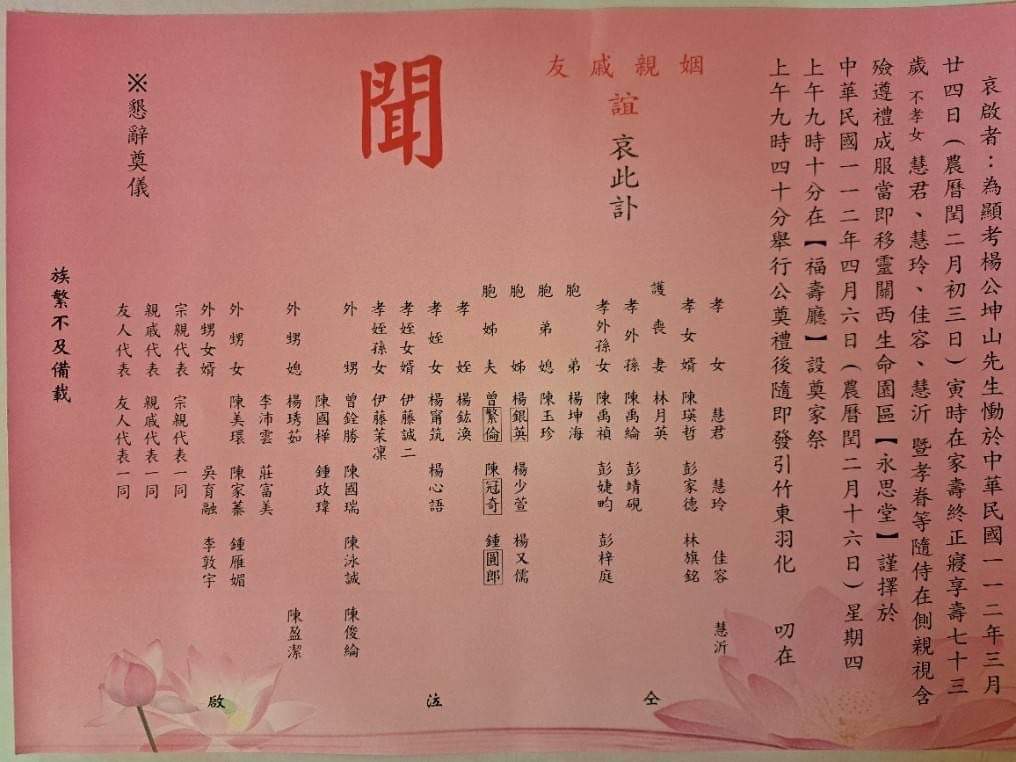 哀啟者：為顯考楊公坤山先生慟於中華民國一一二年三月
廿四日（農曆閏二月初三日）寅時在家壽終正寢享壽七十三
歲 不孝女 慧君、慧玲、佳容、慧沂 暨孝眷等隨侍在側親視含
殮遵禮成服當即移靈關西生命園區【永思堂】謹擇於
中華民國一一二年四月六日（農曆閏二月十六日）星期四
上午九時十分在【福壽廳】設奠家祭
上午九時四十分舉行公奠禮後隨即發引竹東羽化 叨在
姻親戚友
誼 哀此訃
聞
孝女 慧君 慧玲 佳容 慧沂
孝女婿 陳瑛哲 彭家德 林旗銘
護喪妻 林月英
孝外孫 陳禹綸 彭靖硯
孝外孫女 陳禹禎 彭婕畇 彭梓庭
胞弟 楊坤海
胞弟媳 陳玉珍
胞姊 楊銀英 楊少萱 楊又儒
胞姊夫 曾繁倫 陳冠奇 鍾圓郎
孝姪 楊鈜渙
孝姪女 楊甯筑 楊心語
孝姪女婿 伊藤誠二
孝姪孫女 伊藤茉凜
外甥 曾銓勝 陳國瑞 陳泳誠 陳俊綸
陳國樺 鍾政瑋
外甥媳 楊琇茹 陳盈潔
李沛雲 莊富美
外甥女 陳美環 陳家蓁 鍾雁媚
外甥女婿 吳育融 李敦宇
宗親代表 宗親代表一同
親戚代表 親戚代表一同
友人代表 友人代表一同
仝 泣 啟
※懇辭奠儀
族繁不及備載